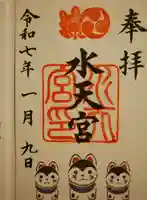 奉拝
水天宮
令和七年一月九日